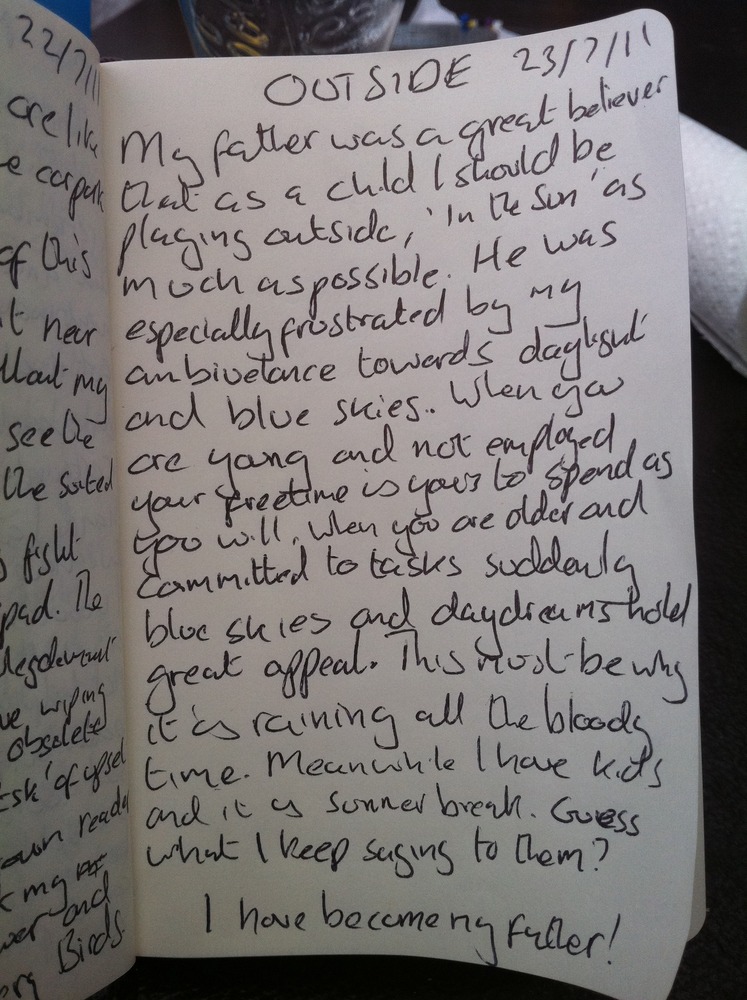 22/7/11
are like
e carpark
of this
t near
that my
see the
the
fight
pad. The
ve wiping
obsolete
own ready
my
and
Birds.
OUTSIDE 23/7/11
My father was a great believer
that as a child I should be
playing outside, 'In the Sun' as
much as possible. He was
especially frustrated by my
ambivelance towards daylight
and blue skies. When you
are young and not employed
your freetime is yours to spend as
you will, when you are older and
committed to tasks suddenly
blue skies and daydreams hold
great appeal. This must be why
it is raining all the bloody
time. Meanwhile I have kids
and it is summer break. Guess
what I keep saying to them?
I have become my father!